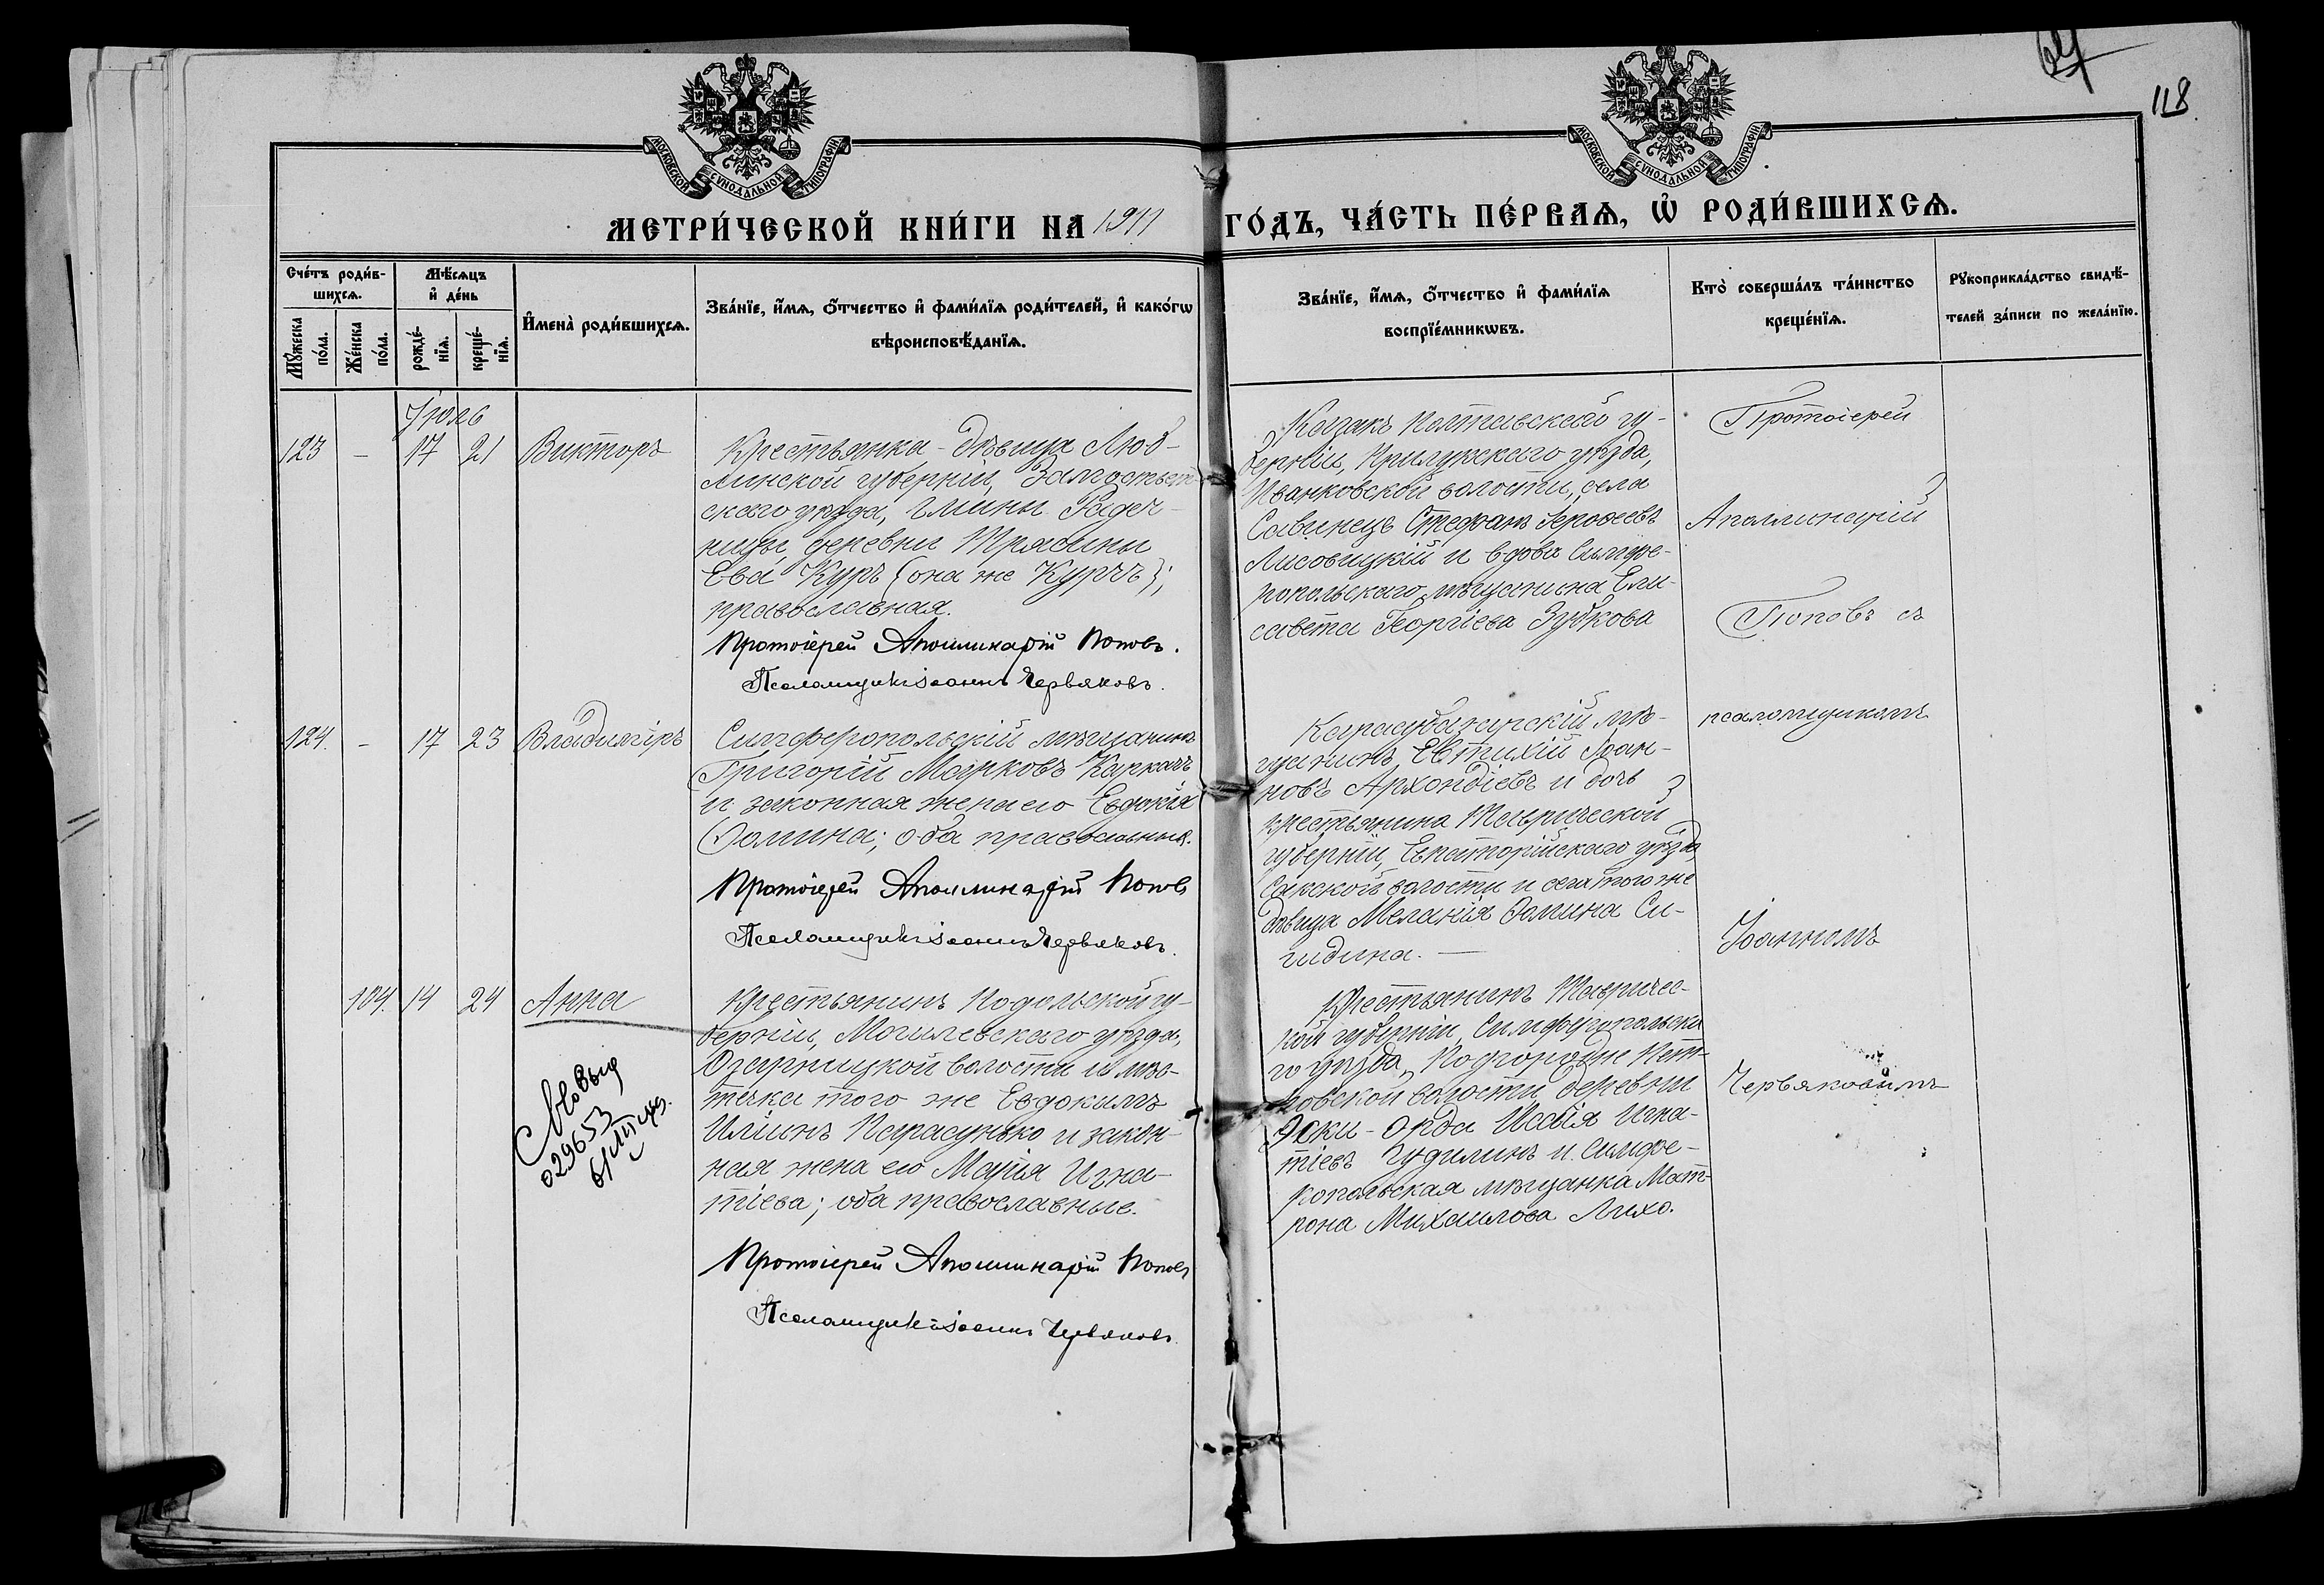 118.
МОСКОВСКОЙ СѴНОДАЛЬНОЙ ТИПОГРАФІИ
МОСКОВСКОЙ СѴНОДАЛЬНОЙ ТИПОГРАФІИ
МЕТРИ́ЧЕСКОЙ КНИ́ГИ НА 1911 ГО́ДЪ, ЧА́СТЬ ПЕ́РВАѦ, Ѡ҆ РОДИ́ВШИХСѦ.
Сче́тъ роди́в-
шихсѧ.
Мꙋ́жеска
по́ла.
Же́нска
по́ла.
Мѣ́сѧцъ
и҆ де́нь
рожде́-
нїѧ.
креще́-
нїѧ.
И҆мена̀ роди́вшихсѧ.
Зва́нїе, и҆́мѧ, ѻ҆́тчество и҆ фами́лїѧ роди́телей, и҆ како́гѡ
вѣроисповѣ́данїѧ.
Зва́нїе, и҆́мѧ, ѻ҆́тчество и҆ фами́лїѧ
воспрїе́мникѡвъ.
Кто̀ соверша́лъ та́инство
креще́нїѧ.
Рꙋкоприкла́дство свидѣ́-
телей за́писи по жела́нїю.
Іюль
123 – 17 21 Викторъ
Крестьянка-дѣвица Люб-
линской губерніи, Замостьен-
скаго уѣзда, гмины Радеч-
ницы, деревни Трясины
Ева Куръ (она же Курчъ);
православная.
Протоіерей Аполлинарій Поповъ.
Псаломщикъ Іоаннъ Червяковъ.
Козакъ Полтавской гу-
берніи, Прилукскаго уѣзда,
Иванковской волости, села
Савинецъ Стефанъ Іерофеевъ
Лисовицкій и вдова Симфе-
ропольскаго мѣщанина Ели-
савета Георгіева Зубкова
124. – 17 23 Владиміръ
Симферопольскій мѣщанинъ
Григорій Марковъ Каркачъ
и законная жена его Евдокія
Ѳомина; оба православные.
Протоіерей Аполлинарій Поповъ
Псаломщикъ Іоаннъ Червяковъ.
Карасубазарскій мѣ-
щанинъ Евтихій Іоан-
новъ Архондіевъ и дочь
крестьянина Таврической
губерніи, Евпаторійскаго уѣзда,
Сакской волости и села того же
дѣвица Меланія Ѳомина Си-
гидина. –
104. 14 24 Анна
029653
Крестьянинъ Подольской гу-
берніи, Могилевскаго уѣзда,
Озаринецкой волости и мѣс-
течка того же Евдокимъ
Иліинъ Парасунько и закон-
ная жена его Марія Игна-
тіева; оба православные.
Протоіерей Аполлинарій Поповъ
Псаломщикъ Іоаннъ Червяковъ
Крестьянинъ Тавричес-
кой губерніи, Симферопольска-
го уѣзда, Подгородне Пет-
ровской волости деревни
Эски-Орда Исаія Игна-
тіевъ Гудилинъ и Симфе-
ропольская мѣщанка Мат-
рона Михаилова Лихо.
Протоіерей
Аполлинарій
Поповъ съ
псаломщикомъ
Іоанномъ
Червяковымъ